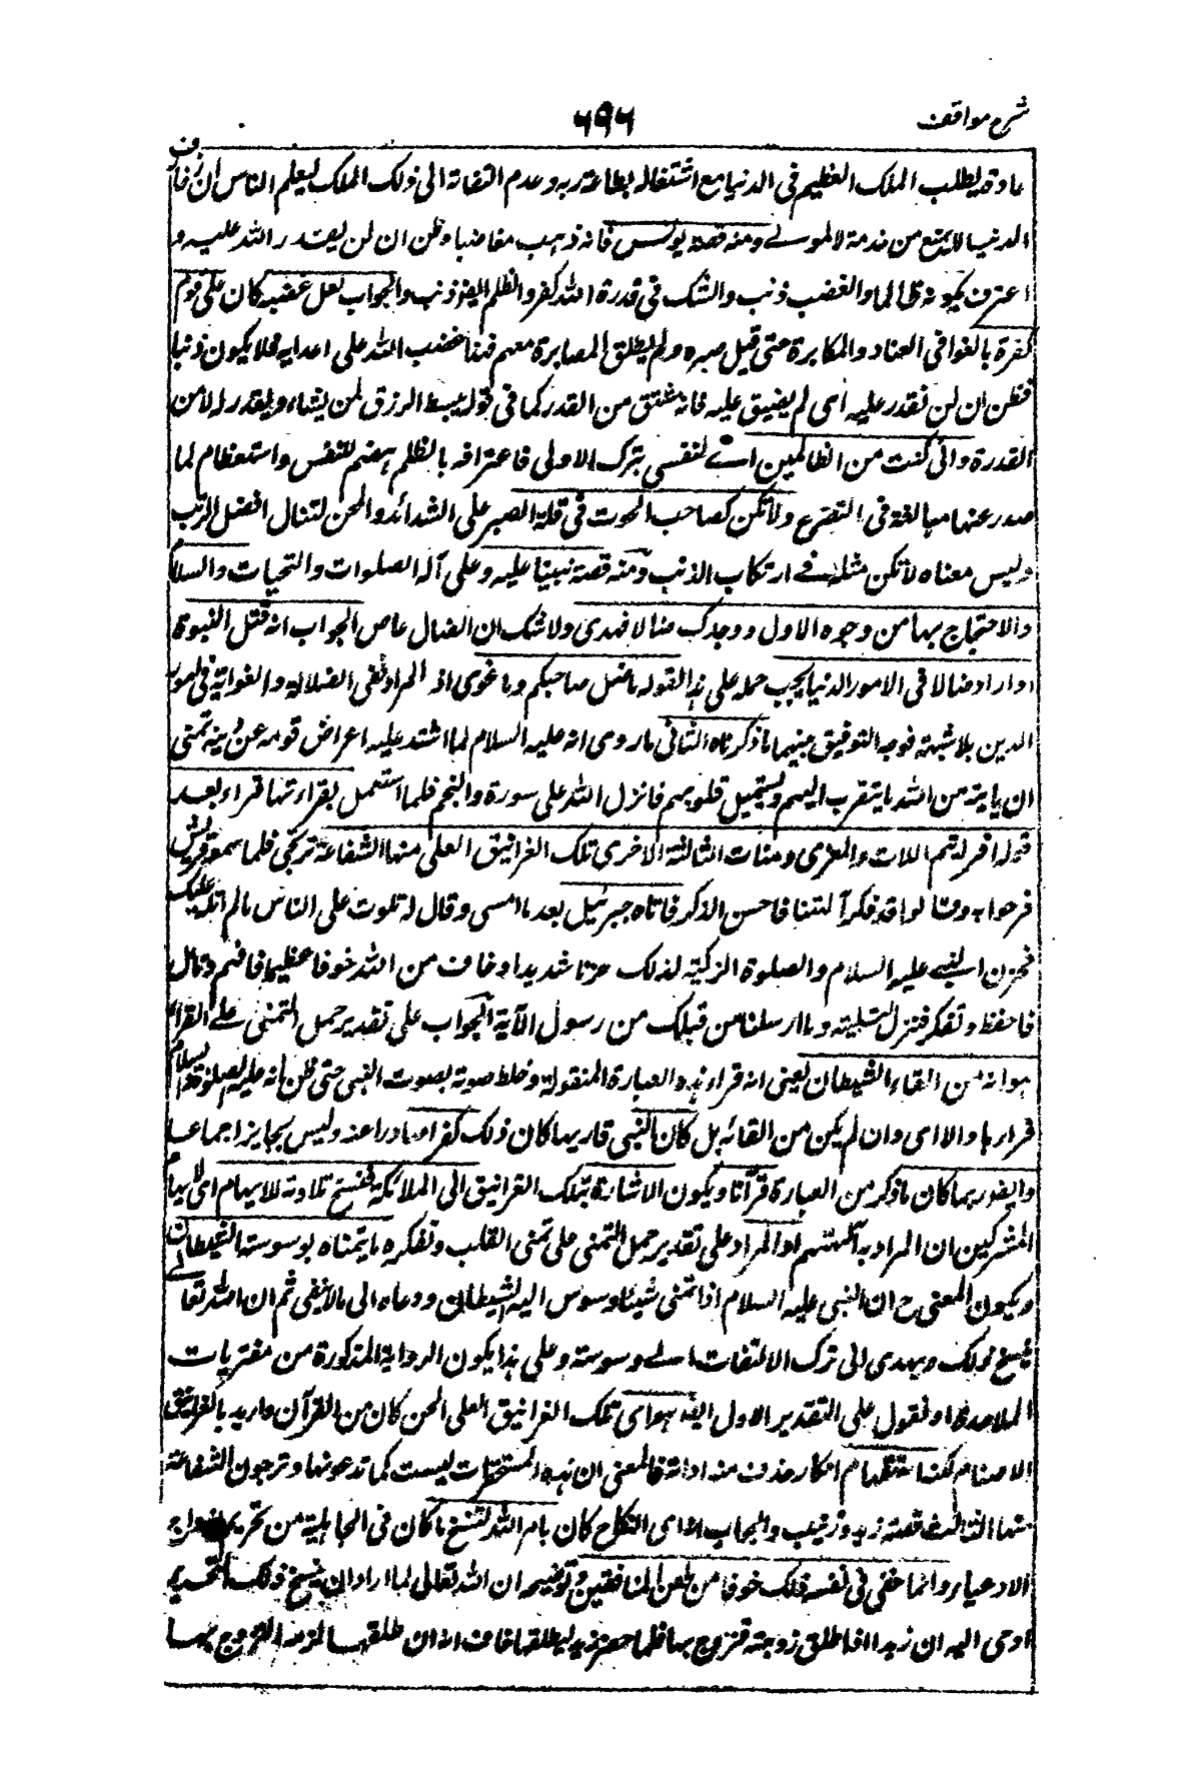 شرح مواقف
٦٩٦
عادة يطلب الملك العظيم فى الدنيا مع اشتغاله بطاعة ربه وعدم التفاته الى ذلك الملك ليعلم الناس ان زخارف
الدنيا لا تمنع من خدمة المولى ومنه قصة يونس فانه ذهب مغاضبا وظن ان لن يقدر الله عليه و
اعترف بكونه ظالما والغضب ذنب والشك فى قدرة الله كفر والظلم ايضا ذنب والجواب لعل غضبه كان على قوم
كفرة بالغوا فى العناد والمكابرة حتى قيل صبره ولم يطلق المصابرة معهم فهذا غضب الله على اعدائه فلا يكون ذنبا
فظن ان لن نقدر عليه اى لم يضيق عليه فانه مشتق من القدر كما فى قوله يبسط الرزق لمن يشاء ويقدر له لا من
القدرة وانى كنت من الظالمين اى لنفسى بترك الاولى فاعترافه بالظلم هضم للنفس واستعظام لما
صدر عنها مبالغة فى التضرع ولا تكن كصاحب الحوت فى قلة الصبر على الشدائد والمحن لتنال افضل الرتب
وليس معناه لا تكن مثله فى ارتكاب الذنب ومنه قصة نبينا عليه وعلى آله الصلوات والتحيات والسلام
والاحتجاج بها من وجوه الاول ووجدك ضالا فهدى ولا شك ان الضال عاص الجواب انه قبل النبوة
او اراد ضالا فى الامور الدنيا يجب حمله على هذا لقوله ما ضل صاحبكم وما غوى اذ المراد نفى الضلالة والغواية فى امور
الدين بلا شبهة فوجه التوفيق بينهما ما ذكرناه الثانى ما روى انه عليه السلام لما اشتد عليه اعراض قومه عن دينه تمنى
ان ياتيه من الله ما يتقرب اليهم ويستميل قلوبهم فانزل الله على سورة والنجم فلما اشتغل بقراءتها قراء بعد
قوله افرايتم اللات والعزى ومنات الثالثة الاخرى تلك الغرانيق العلى منها الشفاعة ترتجى فلما سمعه قريش
فرحوا به وقالوا قد ذكر آلهتنا فاحسن الذكر فاتاه جبرئيل بعد ما امسى وقال له تلوت على الناس ما لم اتله عليك
فحزن النبى عليه السلام والصلوة الزكية لذلك حزنا شديدا وخاف من الله خوفا عظيما فافهم وتامل
فاحفظ وتفكر فنزل لتسليته وما ارسلنا من قبلك من رسول الآية الجواب على تقدير حمل التمنى على القراءة
هو انه من القاء الشيطان يعنى انه قراء هذه العبارة المنقولة وخلط صوته بصوت النبى حتى ظن انه عليه الصلوة والسلام
قرأ بها والا اى وان لم يكن من القائه بل كان النبى قاريها كان ذلك كفرا صادرا عنه وليس بجايز اجماعا
وايضا ربما كان ما ذكر من العبارة قرآنا ويكون الاشارة بتلك الغرانيق الى الملائكة فنسخ تلاوته للايهام اى لايهام
المشركين ان المراد به آلهتهم او المراد على تقدير حمل التمنى على تمنى القلب وتفكره ما يتمناه بوسوسة الشيطان
ويكون المعنى ح ان النبى عليه السلام اذا تمنى شيئا وسوس اليه الشيطان ودعاه الى ما لا ينبغى ثم ان الله تعالى
ينسخ ذلك ويهدى الى ترك الالتفات الى وسوسته وعلى هذا يكون الرواية المذكورة من مفتريات
الملاحدة او نقول على التقدير الاول ايضا هو اى تلك الغرانيق العلى الحن كان من القرآن واريد بالغرانيق
الاصنام لكنه استفهام انكار حذف منه اداته فالمعنى ان هذه المستحقرات ليست كما تدعونها وترجون الشفاعة
منها الثالث قصة زيد وزينب والجواب انه اى النكاح كان بامر الله لنسخ ما كان فى الجاهلية من تحريم ازواج
الادعياء وانما خفى فى نفسه ذلك خوفا من طعن المنافقين وتوضيحه ان الله تعالى لما اراد ان ينسخ ذلك التحريم
اوحى اليه ان زيدا اذا طلق زوجته فتزوج بها فلما حضر زيد ليطلقها خاف انه ان طلقها لزمه التزوج بها